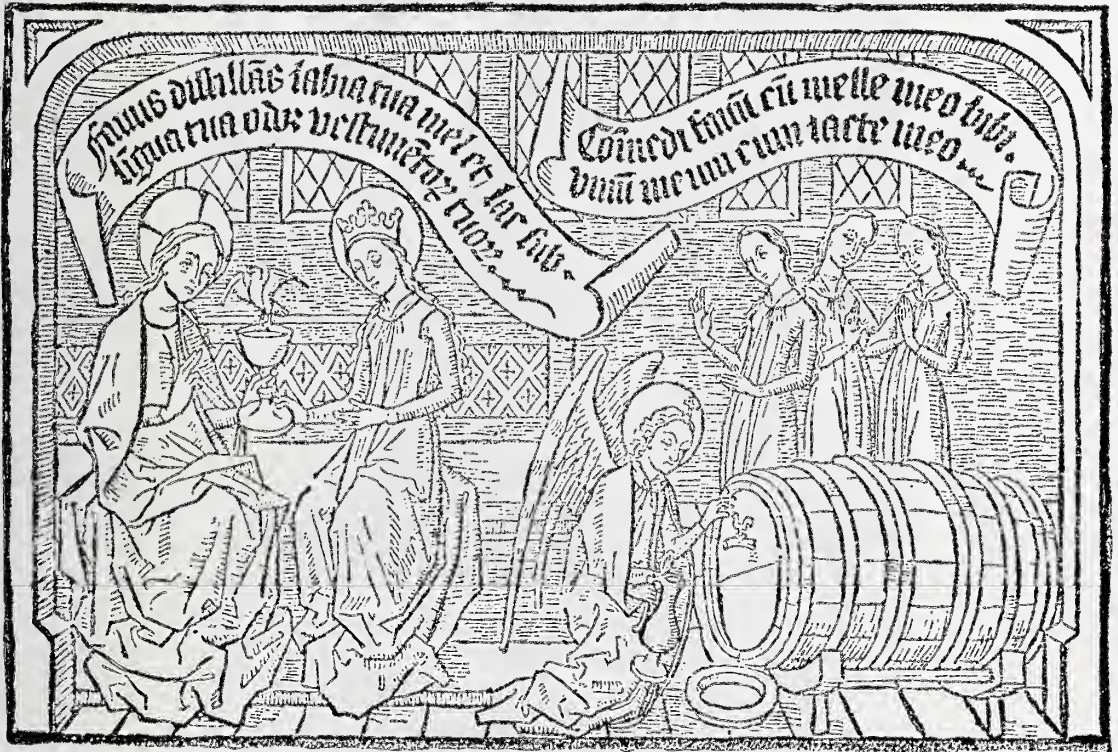 Favus distillãs labia tua mel et lac sub.
lĩgua tua odor vestimẽtoꝝ tuoꝝ.
Cõmedi favũ cũ melle meo bibi.
vinũ meum cum lacte meo